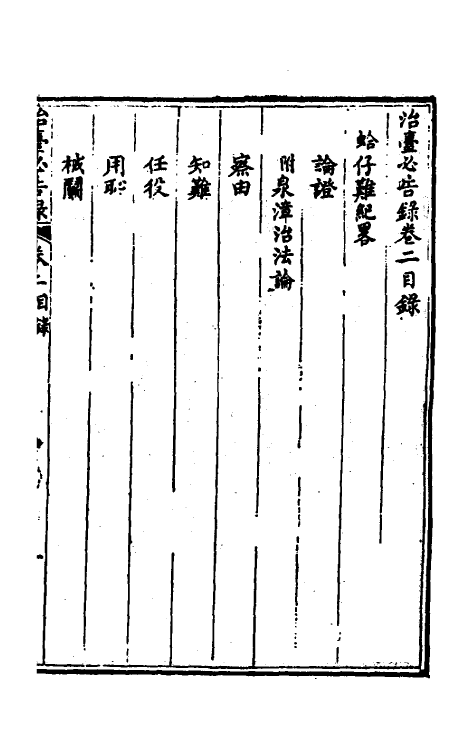 治臺必告錄卷二目錄
蛤仔難紀畧
論證
附泉漳治法論
察由
知難
任役
用恥
械鬬
治臺必告錄 卷二目錄